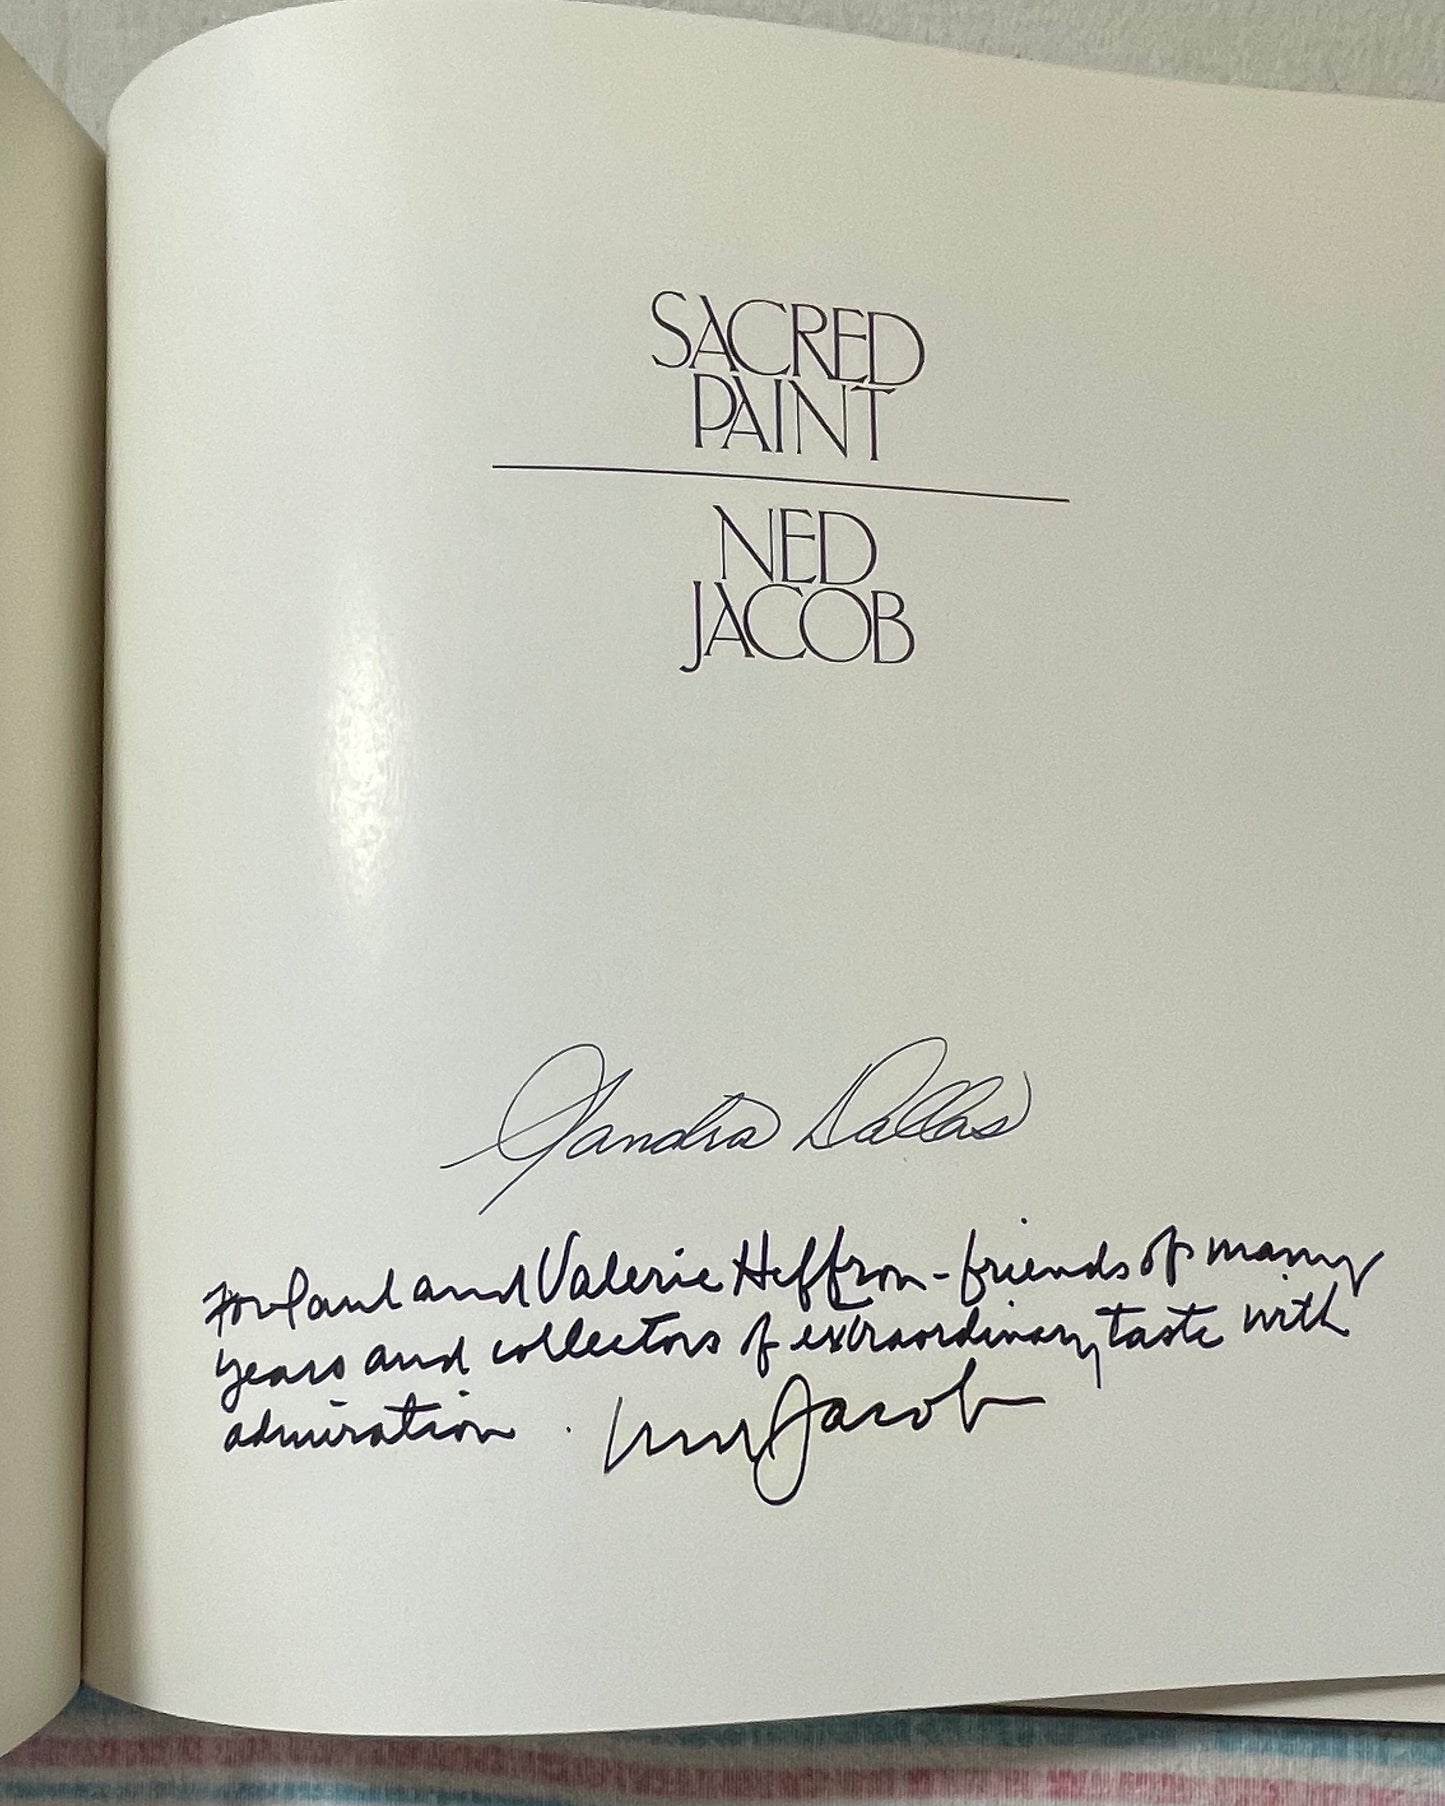 SACRED
PAINT
NED
JACOB
Sandra Dallas
For Paul and Valerie Heffron - friends of many
years and collectors of extraordinary taste with
admiration. Ned Jacob